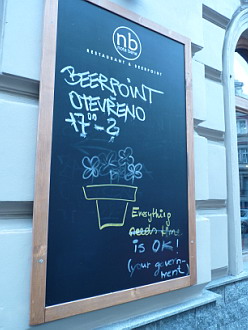 nb
RESTAURANT & BEERPOINT
BEERPOINT
OTEVŘENO
17⁰⁰-2
Everything
needs time
is OK!
(your govern-
ment)